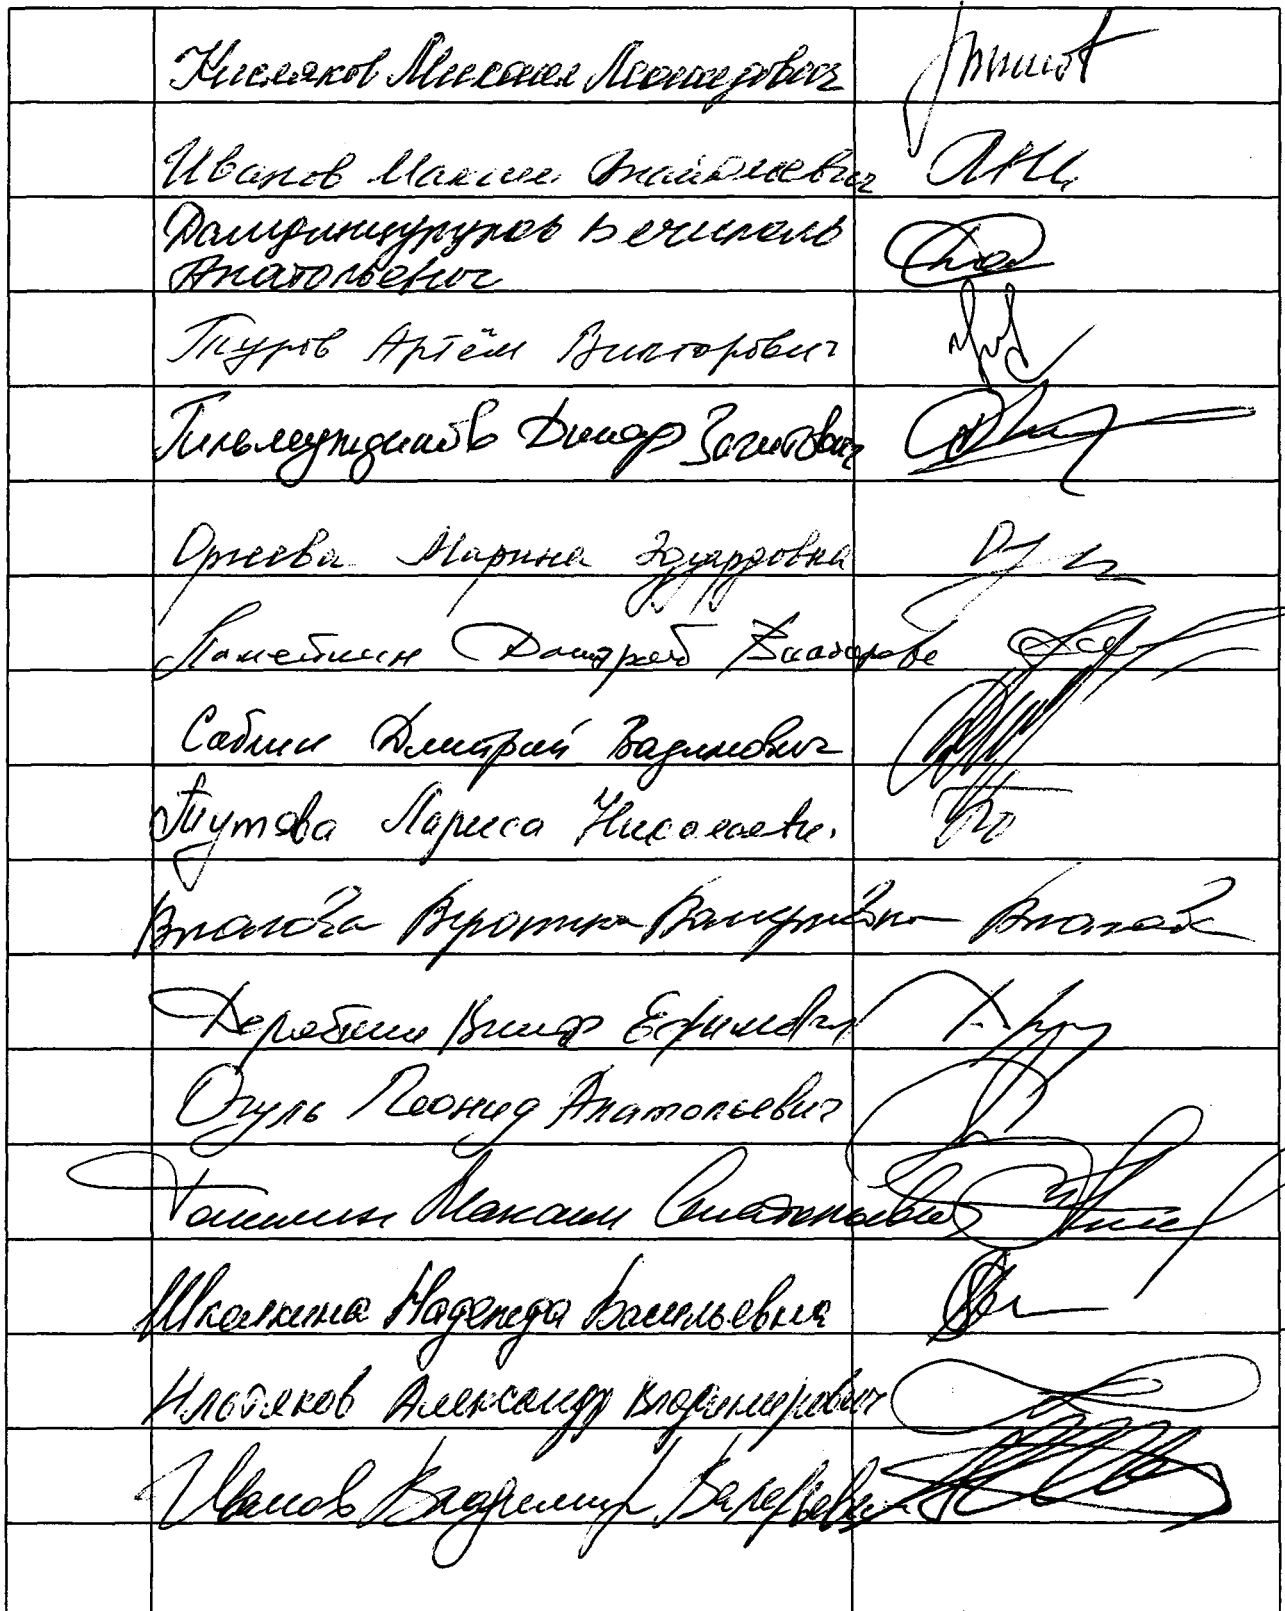 Кисляков Михаил Леонидович
Иванов Максим Анатольевич
Дамдинцурунов Вячеслав
Анатольевич
Туров Артём Викторович
Гильмутдинов Динар Загитович
Оргеева Марина Эдуардовна
Ламейкин Дмитрий Викторович
Саблин Дмитрий Вадимович
Тутова Лариса Николаевн.
Власова Вероника Валериевна Власова
Дерябкин Виктор Ефимович
Огуль Леонид Анатольевич
Гашилин Максим Анатольевич
Школкина Надежда Васильевна
Ильтяков Александр Владимирович
Иванов Владимир Валерьевич